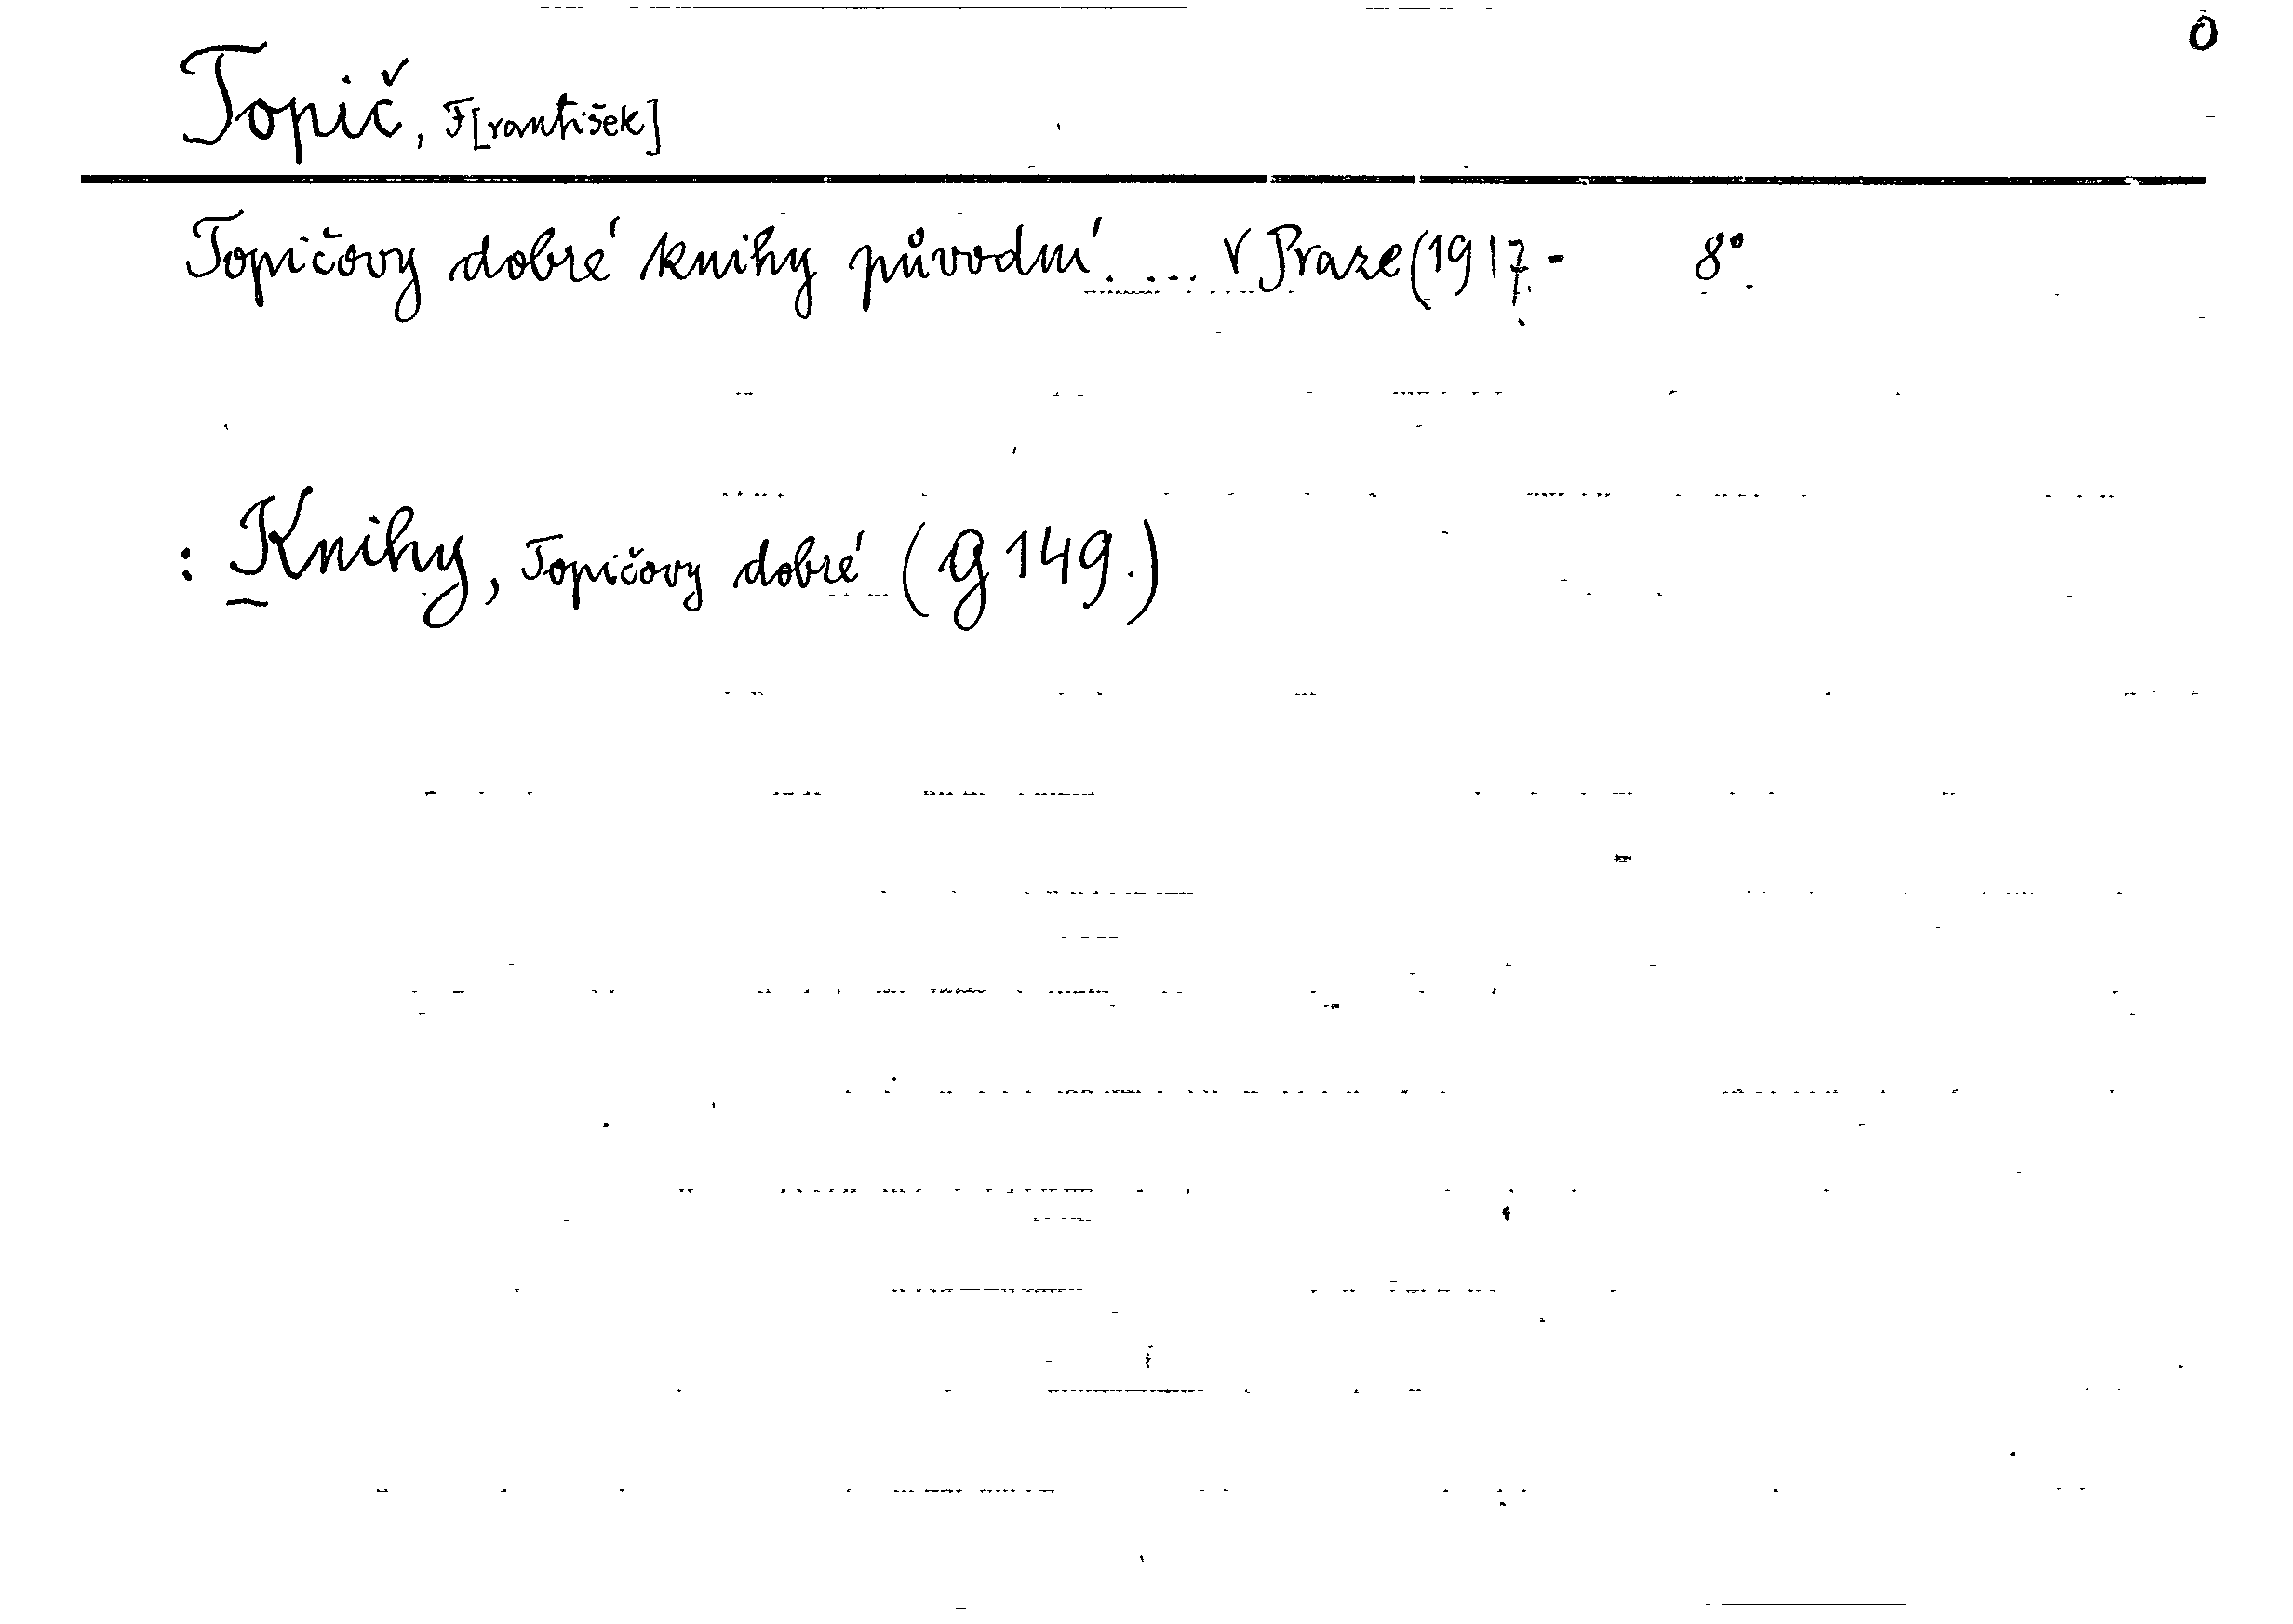 O
Topič, F[rantišek]
Topičovy dobré knihy původní. ... V Praze (1917- 8°.
: Knihy, Topičovy dobré (G 149.)